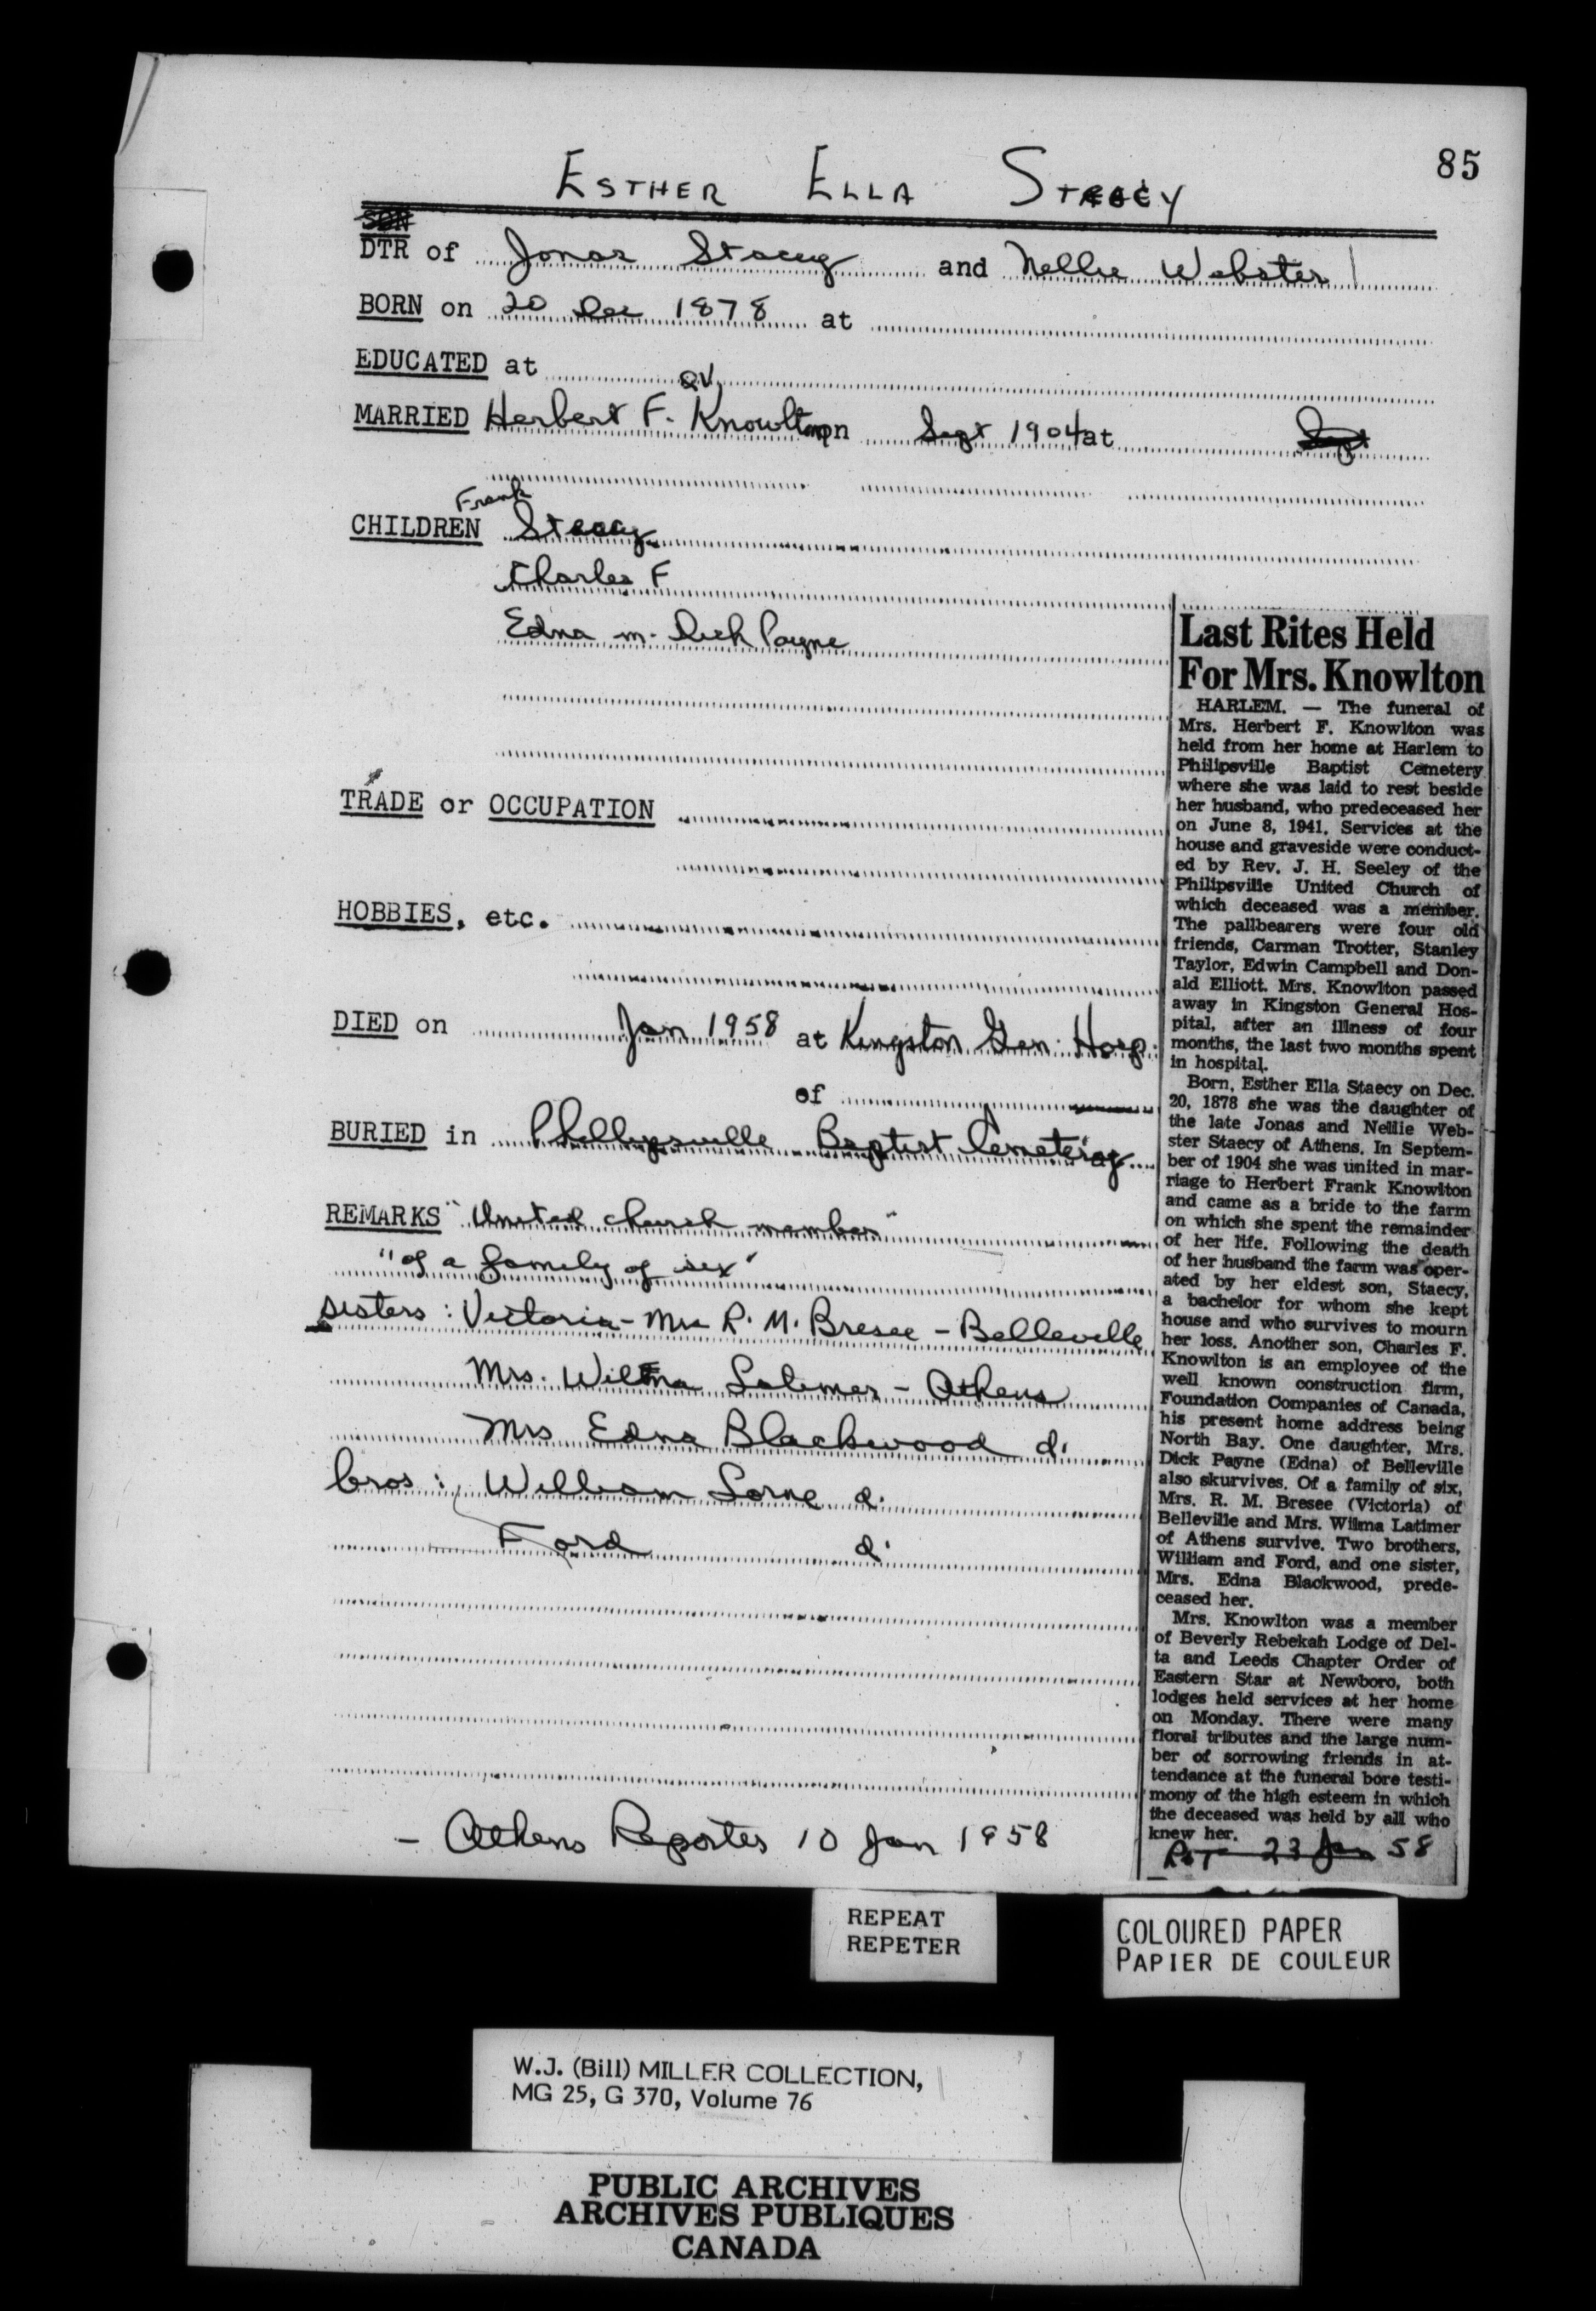 85
ESTHER ELLA STAECY
SON
DTR of Jonas Stacey and Nellie Webster
BORN on 20 Dec 1878 at
EDUCATED at
qv
MARRIED Herbert F. Knowlton on Sept 1904 at Sept
Frank
CHILDREN Staecy
Charles F
Edna m. Dick Payne
TRADE or OCCUPATION
HOBBIES, etc.
DIED on Jan 1958 at Kingston Gen. Hosp.
of
BURIED in Phillipsville Baptist Cemetery
REMARKS "United church member"
"of a family of six"
sisters: Victoria - Mrs R. M. Bresee - Belleville
Mrs. Wilma Latimer - Athens
Mrs Edna Blackwood d.
bros: William Lorne d.
Ford d.
- Athens Reporter 10 Jan 1958
Last Rites Held
For Mrs. Knowlton
HARLEM. — The funeral of
Mrs. Herbert F. Knowlton was
held from her home at Harlem to
Philipsville Baptist Cemetery
where she was laid to rest beside
her husband, who predeceased her
on June 8, 1941. Services at the
house and graveside were conduct-
ed by Rev. J. H. Seeley of the
Philipsville United Church of
which deceased was a member.
The pallbearers were four old
friends, Carman Trotter, Stanley
Taylor, Edwin Campbell and Don-
ald Elliott. Mrs. Knowlton passed
away in Kingston General Hos-
pital, after an illness of four
months, the last two months spent
in hospital.
Born, Esther Ella Staecy on Dec.
20, 1878 she was the daughter of
the late Jonas and Nellie Web-
ster Staecy of Athens. In Septem-
ber of 1904 she was united in mar-
riage to Herbert Frank Knowlton
and came as a bride to the farm
on which she spent the remainder
of her life. Following the death
of her husband the farm was oper-
ated by her eldest son, Staecy,
a bachelor for whom she kept
house and who survives to mourn
her loss. Another son, Charles F.
Knowlton is an employee of the
well known construction firm,
Foundation Companies of Canada,
his present home address being
North Bay. One daughter, Mrs.
Dick Payne (Edna) of Belleville
also skurvives. Of a family of six,
Mrs. R. M. Bresee (Victoria) of
Belleville and Mrs. Wilma Latimer
of Athens survive. Two brothers,
William and Ford, and one sister,
Mrs. Edna Blackwood, prede-
ceased her.
Mrs. Knowlton was a member
of Beverly Rebekah Lodge of Del-
ta and Leeds Chapter Order of
Eastern Star at Newboro, both
lodges held services at her home
on Monday. There were many
floral tributes and the large num-
ber of sorrowing friends in at-
tendance at the funeral bore testi-
mony of the high esteem in which
the deceased was held by all who
knew her.
R&T 23 Jan 58
REPEAT
REPETER
COLOURED PAPER
PAPIER DE COULEUR
W.J. (Bill) MILLER COLLECTION,
MG 25, G 370, Volume 76
PUBLIC ARCHIVES
ARCHIVES PUBLIQUES
CANADA